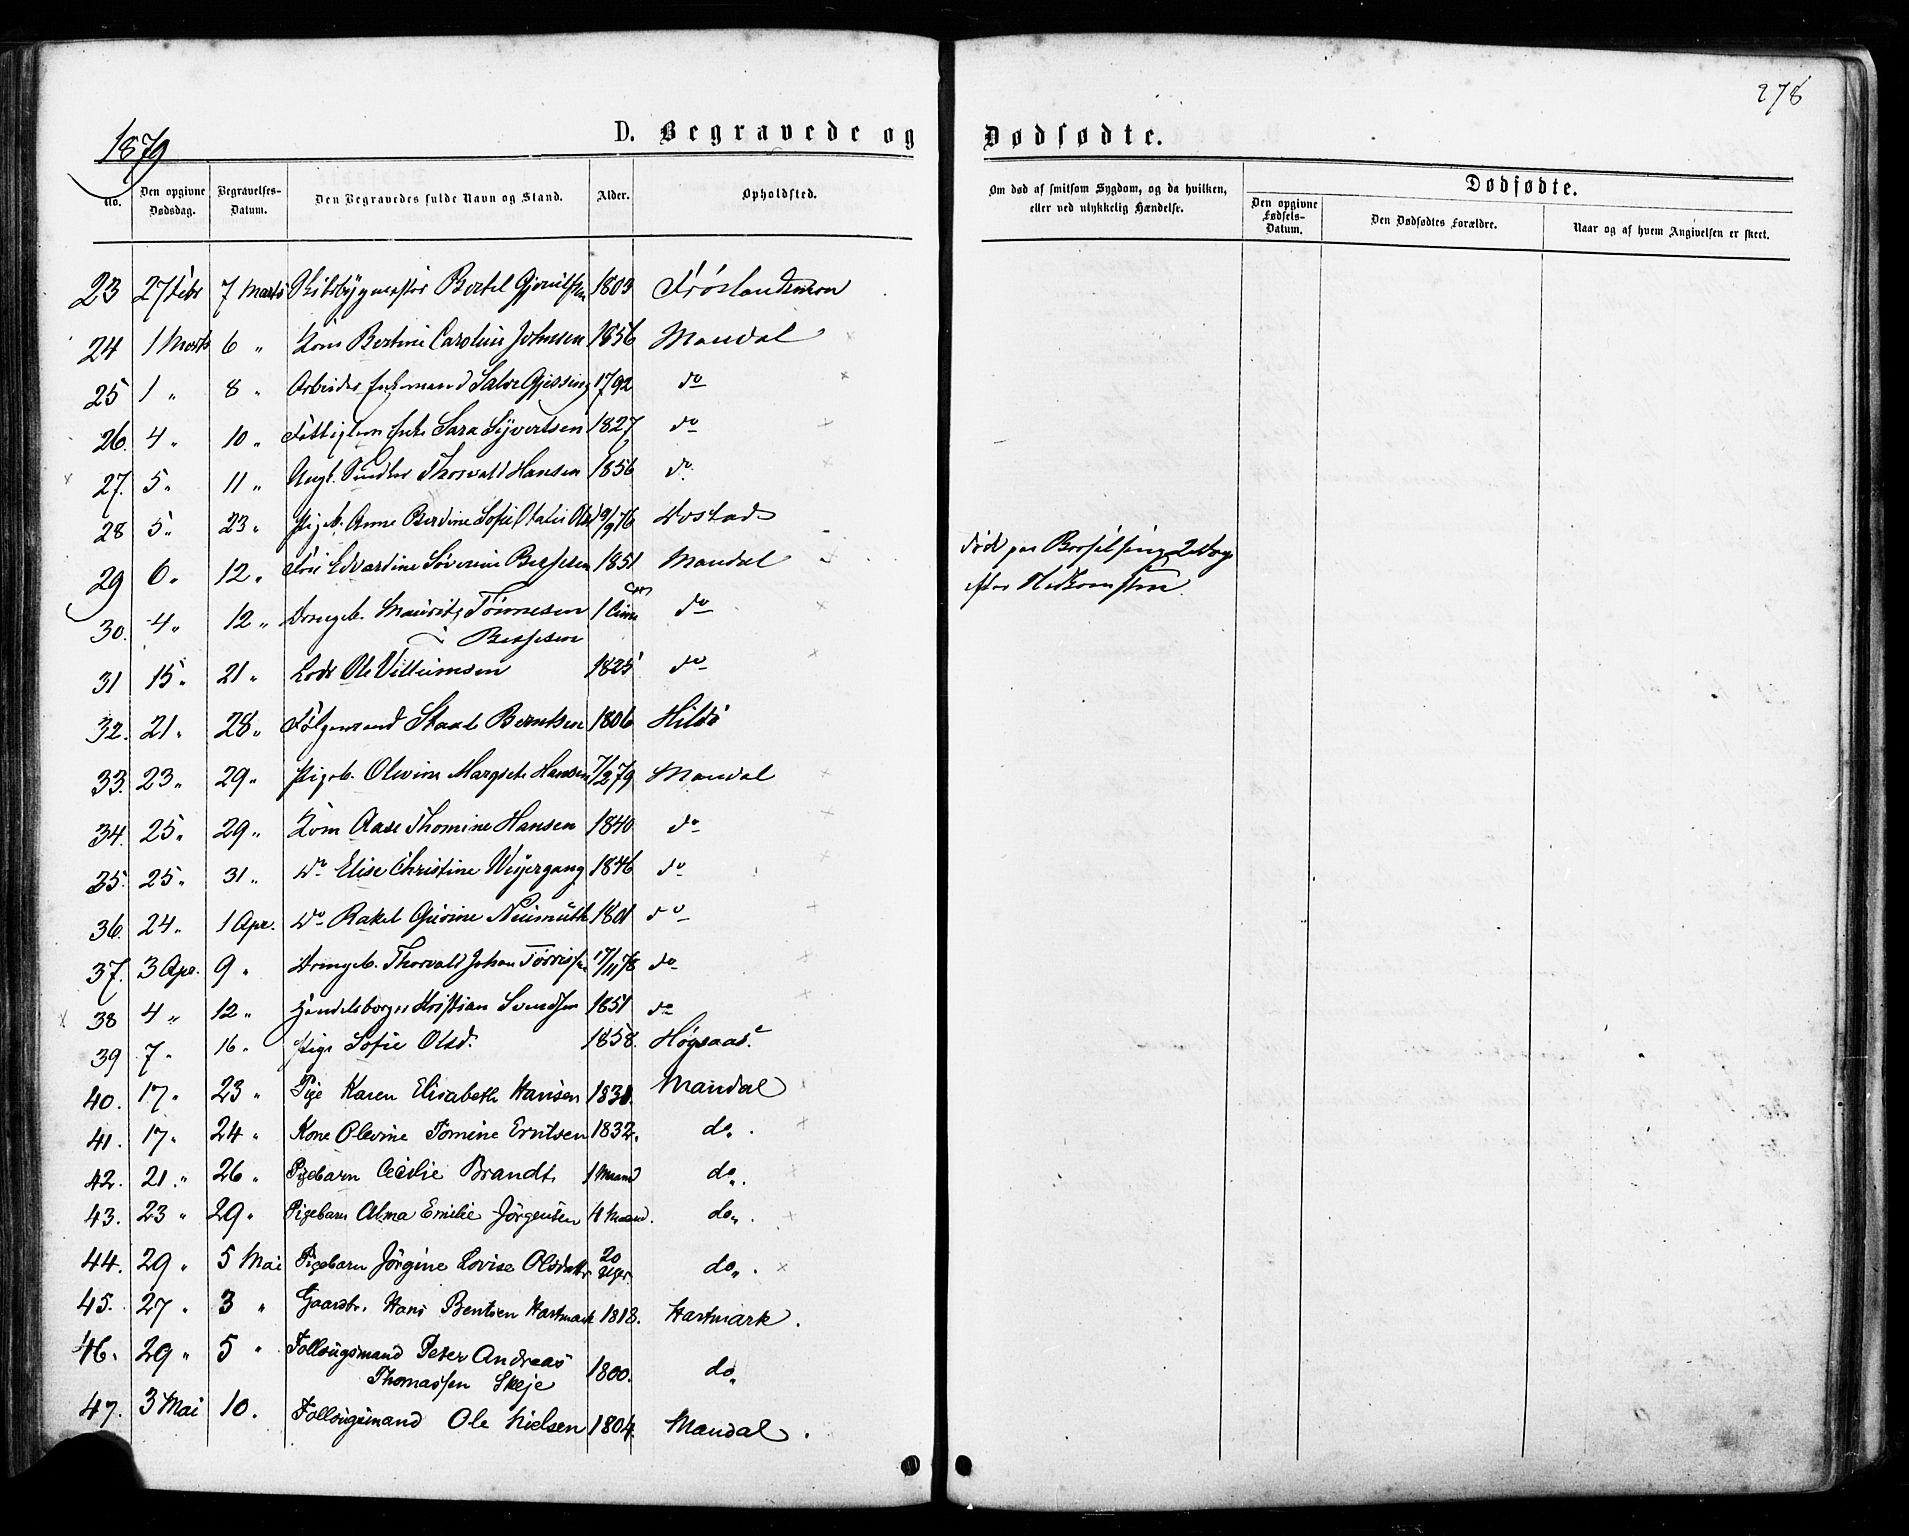 278
1879
D. Begravede og Dødfødte.
No.
Den opgivne Dødsdag.
Begravelses-Datum.
Den Begravedes fulde Navn og Stand.
Alder.
Opholdsted.
Om død af smitsom Sygdom, og da hvilken, eller ved ulykkelig Hændelse.
Dødfødte.
Den opgivne Fødsels-Datum.
Den Dødfødtes Forældre.
Naar og af hvem Angivelsen er skeet.
23 27 Febr 7 Marts Skibsbygmester Bertel 1803
24 1 Marts 6 " Kone Bertine Caroline Johnsen 1856 Mandal
25 1 " 8 " Arbeider Enkemand Salve Gjessing 1792 do
26. 4 " 10 " Fattiglem Enke Sara Syvertsen 1827 do
27. 5 " 11 " Ungk. Snedker Thorvald Hansen 1856 do
28 5 " 23 " Pigeb. Anne Berdine Sofie Otalie Olsd 9/76
29 6 " 12 " Edvardine Severine Berssen 1851 Mandal død paa Barselseng 2 Dage
efter Nedkomsten.
30. 4 " 12 " Drengeb. Mauritz Tønnesen 1 do
31 15 " 21 " Lods Ole Villumsen 1825 do
32. 21 " 28 " Følgemand Berntsen 1806
33. 23 " 29 " Pigeb. Olevine Margrete Hansen 7/2 79 Mandal
34. 25 " 29 " Kone Aase Thomine Hansen 1840 do
35. 25 " 31 " do Elise Christine Weyergang 1846 do
36. 24 " 1 Apr. do Rakel Neumüth 1801 do
37. 3 Apr. 9 " Drengeb. Thorvald Johan Tørrisen 17/11 78 do
38 4 " 12 " Handelsborger Kristian Svendsen 1851 do
39 7 " 16 " Pige Sofie Olsd. 1858. Høgsaas.
40. 17 " 23 " Pige Karen Elisabeth Hansen Mandal
41. 17 " 24 " Kone Olevine Tomine Erntsen 1832. do.
42. 21 " 26 " Pigebarn Cecilie Brandt. 1 Maaned do.
43. 23 " 29 " Pigebarn Alma Emilie Jörgensen 4 Maaned. do.
44. 29 " 5 Mai Pigebarn Jörgine Lovise Olsdattr 20 Uger. do.
45. 27 " 3 " Gaardbr. Hans Bentsen Hartmark 1818. Hartmark.
46. 29 " 5 " Follaugsmand Peter Andreas
Thomassen Skeje 1800. do.
47. 3 Mai 10. Follaugsmand Ole Nielsen 1804. Mandal.